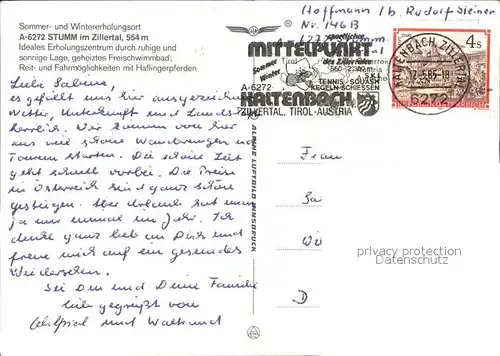 Sommer- und Wintererholungsort
A-6272 STUMM im Zillertal, 554 m
Ideales Erholungszentrum durch ruhige und
sonnige Lage, geheiztes Freischwimmbad;
Reit- und Fahrmöglichkeiten mit Haflingerpferden
Liebe Sabine,
es gefällt uns hier ausgezeichnet
Wetter, Unterkunft und Landschaft
herrlich. Wir können von hier
aus viele schöne Wanderungen und
Touren starten. Die schöne Zeit
geht schnell vorbei. Die Preise
in Österreich sind ganz schön
gestiegen. Aber Urlaub hat man
ja nur einmal im Jahr. Ich
denke ganz lieb an Dich und
freue mich auf ein gesundes
Wiedersehen.
Sei Du und Deine Familie
lieb gegrüßt von
und Waltraud
ALPINE LUFTBILD INNSBRUCK
Hoffmann b. Rudolf Steiner
Nr. 146 B
6272
sportlicher
MITTELPUNKT
des Zillertales
Sommer Tirol
Winter 560-2300 m
SKI
A-6272 TENNIS-SQUASH
KEGELN-SCHIESSEN
KALTENBACH
ZILLERTAL, TIROL-AUSTRIA
KALTENBACH, ZILLERTAL
-5.85-18
6272
4 s
Frau
Sa
Wi
D
privacy protection
watermark